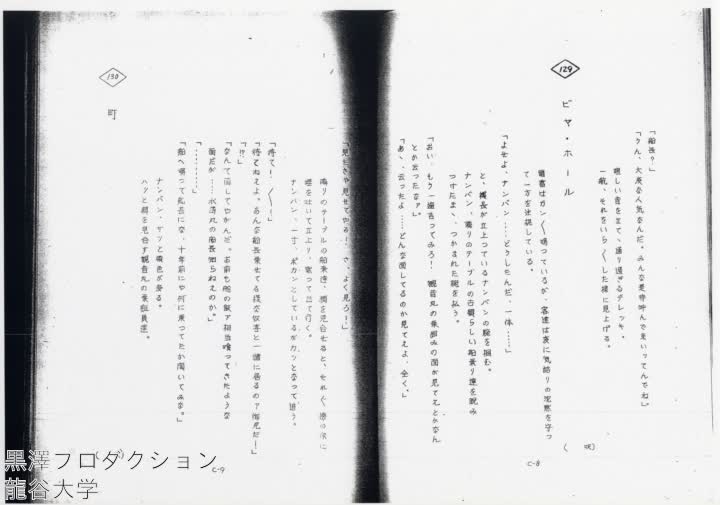 「船長?」
「うん、大変な人気なんだ。みんな是非呼んで来いってんでね」
眩しい音を立て、通り過ぎるデレッキ。
一瞬、それをいら〱した様に見上げる。
(咲)
129
ビヤ・ホール
蓄音はガン〱鳴っているが、客達は変に気詰りの沈黙を守っ
て一方を注視している。
「よせよ、ナンバン……どうしたんだ、一体……」
と、機長が立上っているナンバンの腕を掴む。
ナンバン、隣りのテーブルの古顔らしい船乗り達を睨み
つけたまゝ、つかまれた腕を払う。
「おい、もう一遍言ってみろ!
とか云ったなァ」
「あゝ、云ったよ……どんな面してるのか見てえよ、全く。」
C-8
「見せちゃ見せてやる!、さ、よく見ろ!」
隣りのテーブルの船乗達、顔を見合せると、それ〲
唾を吐いて立上り、黙って出て行く。
ナンバン、一寸、ポカンとしているがカッとなって追う。
130
町
「待て!、〱!」
「待てねえよ。あんな船長乗せてる様な奴等と一緒に居るのァ
「!?」
「なんて面してやがんだ。お前も他の飯ァ相当喰ってきたような
面だが……
「…………」
「船へ帰って船長にな、十年前にや何に乗ってたか聞いてみな。」
ナンバン、サッと顔色が変る。
ハッと顔を見合す
C-9
黒澤プロダクション
龍谷大学